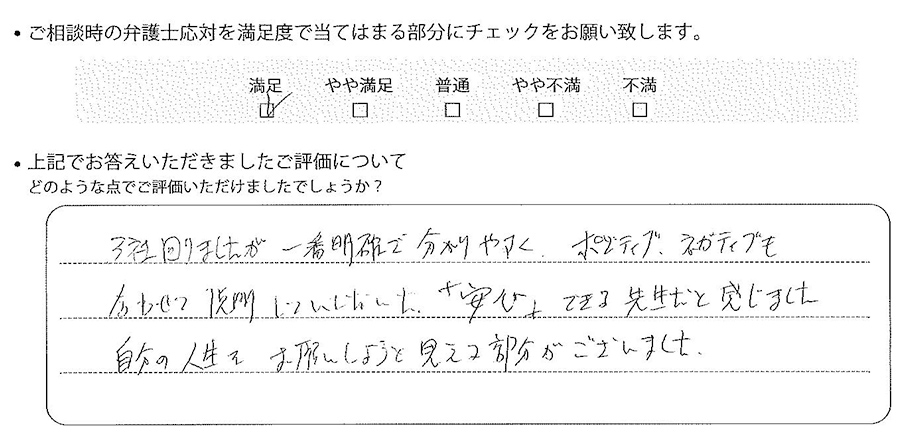 ・ご相談時の弁護士応対を満足度で当てはまる部分にチェックをお願い致します。
満足 やや満足 普通 やや不満 不満
・上記でお答えいただきましたご評価について
どのような点でご評価いただけましたでしょうか？
3社回りましたが 一番明確で 分かりやすく、ポジティブ、ネガティブも
合わせて 説明 していただいた。「安心」できる 先生だと 感じました
自分の人生を お願いしようと 見える 部分がございました。